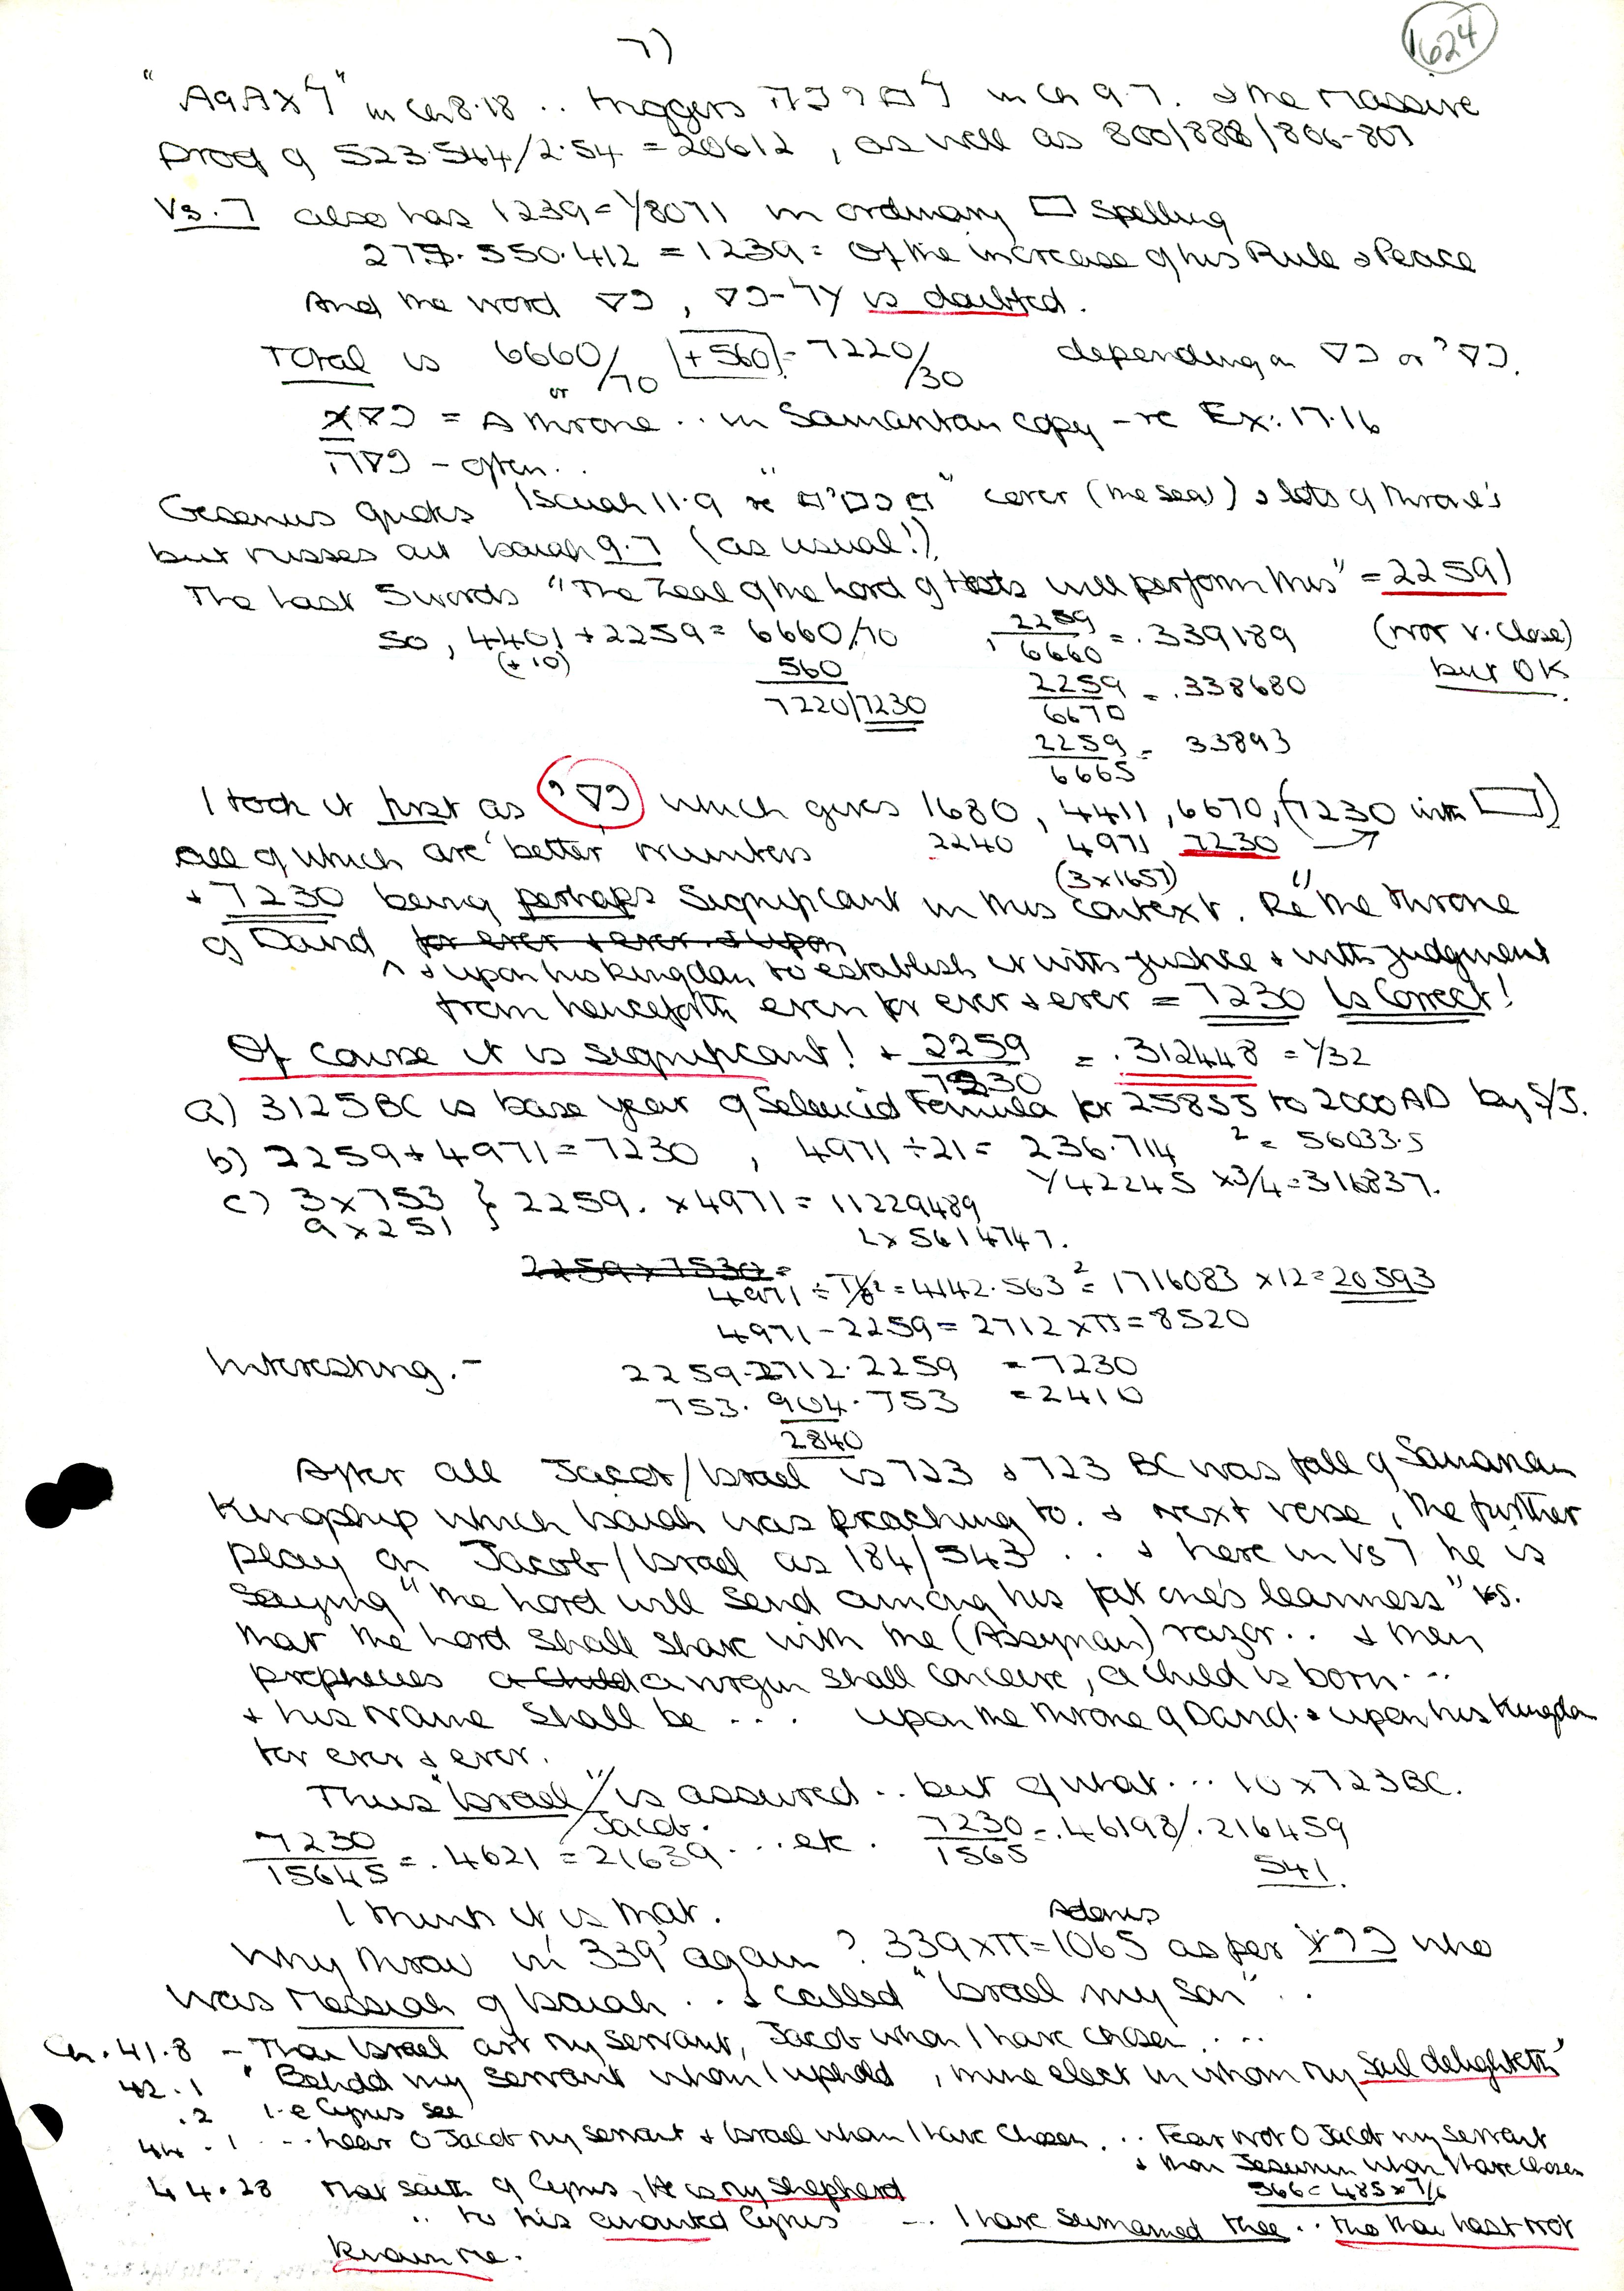 7)
1624
"     " in Ch 8.18 .. triggers      in Ch 9.7. & the Massive
Prog of 523.544/2.54 = 20612, as well as 800/888/806-807
Vs.7 also has 1239 = 1/8071 in ordinary □ spelling
277.550.412 = 1239 = Of the increase of his Rule & Peace
And the word      ,      is doubted.
Total is 6660/70 [+560] = 7220/30 depending on      or      .
or
     = A throne .. in Samaritan copy - re Ex: 17.16
     - often..
Gesenius quotes Isaiah 11.9 re "     " cover (the seas) & lots of throne's
but misses out Isaiah 9.7 (as usual!)
The last 5 words "The Zeal of the Lord of Hosts will perform this" = 2259)
so, 4401 + 2259 = 6660/70 , 2259/6660 = .339189 (not v. close)
(+10) 560 but OK
7220/7230 2259/6670 = .338680
2259/6665 = 33893
I took it first as      which gives 1680, 4411, 6670, (7230 with □)
all of which are 'better' numbers 2240 4971 7230 →
(3x1657)
& 7230 being perhaps significant in this context. Re "the throne
of David for ever & ever. & upon
^ & upon his kingdom to establish it with justice & with judgment
from henceforth even for ever & ever = 7230 is correct!
Of course it is significant! & 2259/7230 = .312448 = 1/32
a) 3125 BC is base year of Seleucid Formula for 25855 to 2000 AD by S/J.
b) 2259 + 4971 = 7230 , 4971 ÷ 21 = 236.714 ² = 56033.5
1/42245 x 3/4 = 316837.
c) 3 x 753 } 2259. x 4971 = 11229489
9 x 251 2x 5614747.
2259 x 7530 =
4971 ÷      = 4142.563 ² = 1716083 x 12 = 20593
4971 - 2259 = 2712 x π = 8520
Interesting. - 2259.2712.2259 = 7230
753. 904. 753 = 2410
2840
After all Jacob/Israel is 723 & 723 BC was fall of Samarian
Kingship which Isaiah was preaching to. & next verse, the further
play on Jacob/Israel as 184/543 .. & here in Vs 7 he is
saying "the Lord will send among his fat one's leanness" vs.
that the Lord shall shave with the (Assyrian) razor.. & then
prophecies a child a virgin shall conceive, a child is born...
& his name shall be .... upon the throne of David. & upon his Kingdom
for ever & ever.
Thus "Israel"/Jacob is assured .. but of what... 10 x 723 BC.
7230/15645 = .4621 = 21639 ... etc. 7230/1565 = .46198/.216459
541.
I think it is that.
Adonis
Why throw in '339' again? 339 x π = 1065 as per      who
was Messiah of Isaiah .. & called "Israel my son"..
Ch. 41.8 - Thou Israel art my servant, Jacob whom I have chosen ....
42.1 "Behold my servant whom I uphold, mine elect in whom my soul delighteth"
.2 i.e Cyrus see
44.1 ... hear O Jacob my servant & Israel whom I have chosen. .. Fear not O Jacob my servant
& thou Jesurun whom I have chosen
566 = 485 x 7/6
44.28 that saith of Cyrus, He is my shepherd
.. to his anointed Cyrus - .. I have surnamed thee .. tho thou hast not
known me.